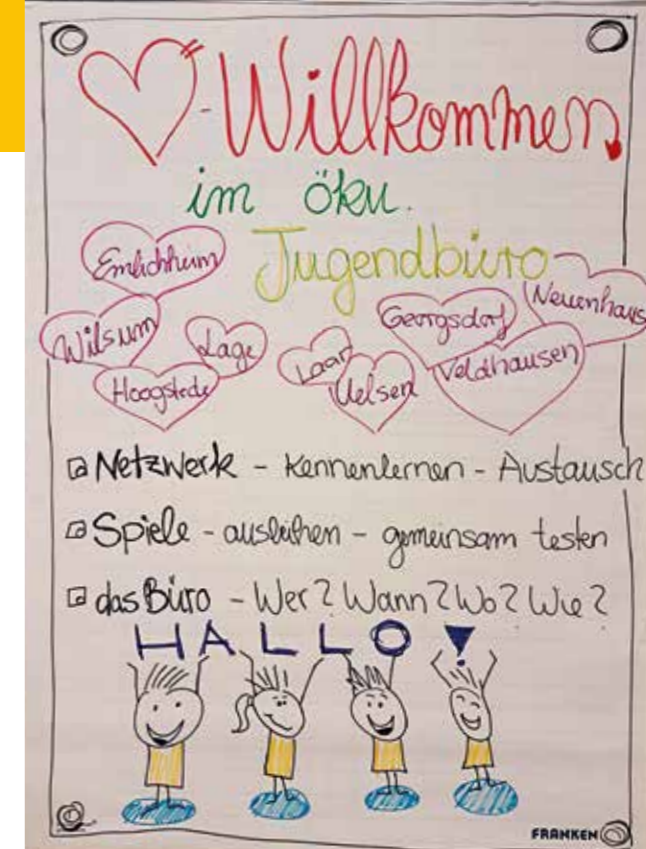 Willkommen
im öku.
Jugendbüro
Emlichheim
Wilsum
Lage
Hoogstede
Laar
Uelsen
Georgsdorf
Neuenhaus
Veldhausen
Netzwerk - Kennenlernen - Austausch
Spiele - ausleihen - gemeinsam testen
das Büro - Wer? Wann? Wo? Wie?
HALLO!
FRANKEN